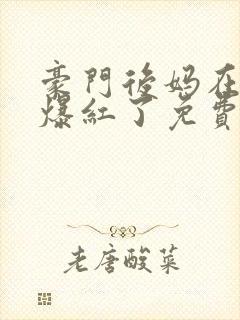 豪門後媽在
爆紅了免費
老唐酸菜